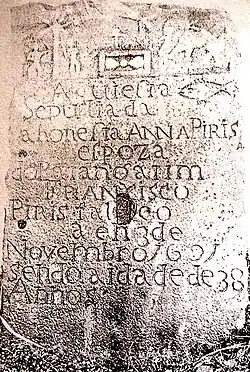 Aqui esta
Sepultada
a honesta ANNA PIRIS
espoza
do
FRANCISCO
PIRIS
a en 3 de
Novembro 1691
sendo aidade de 38
Annos